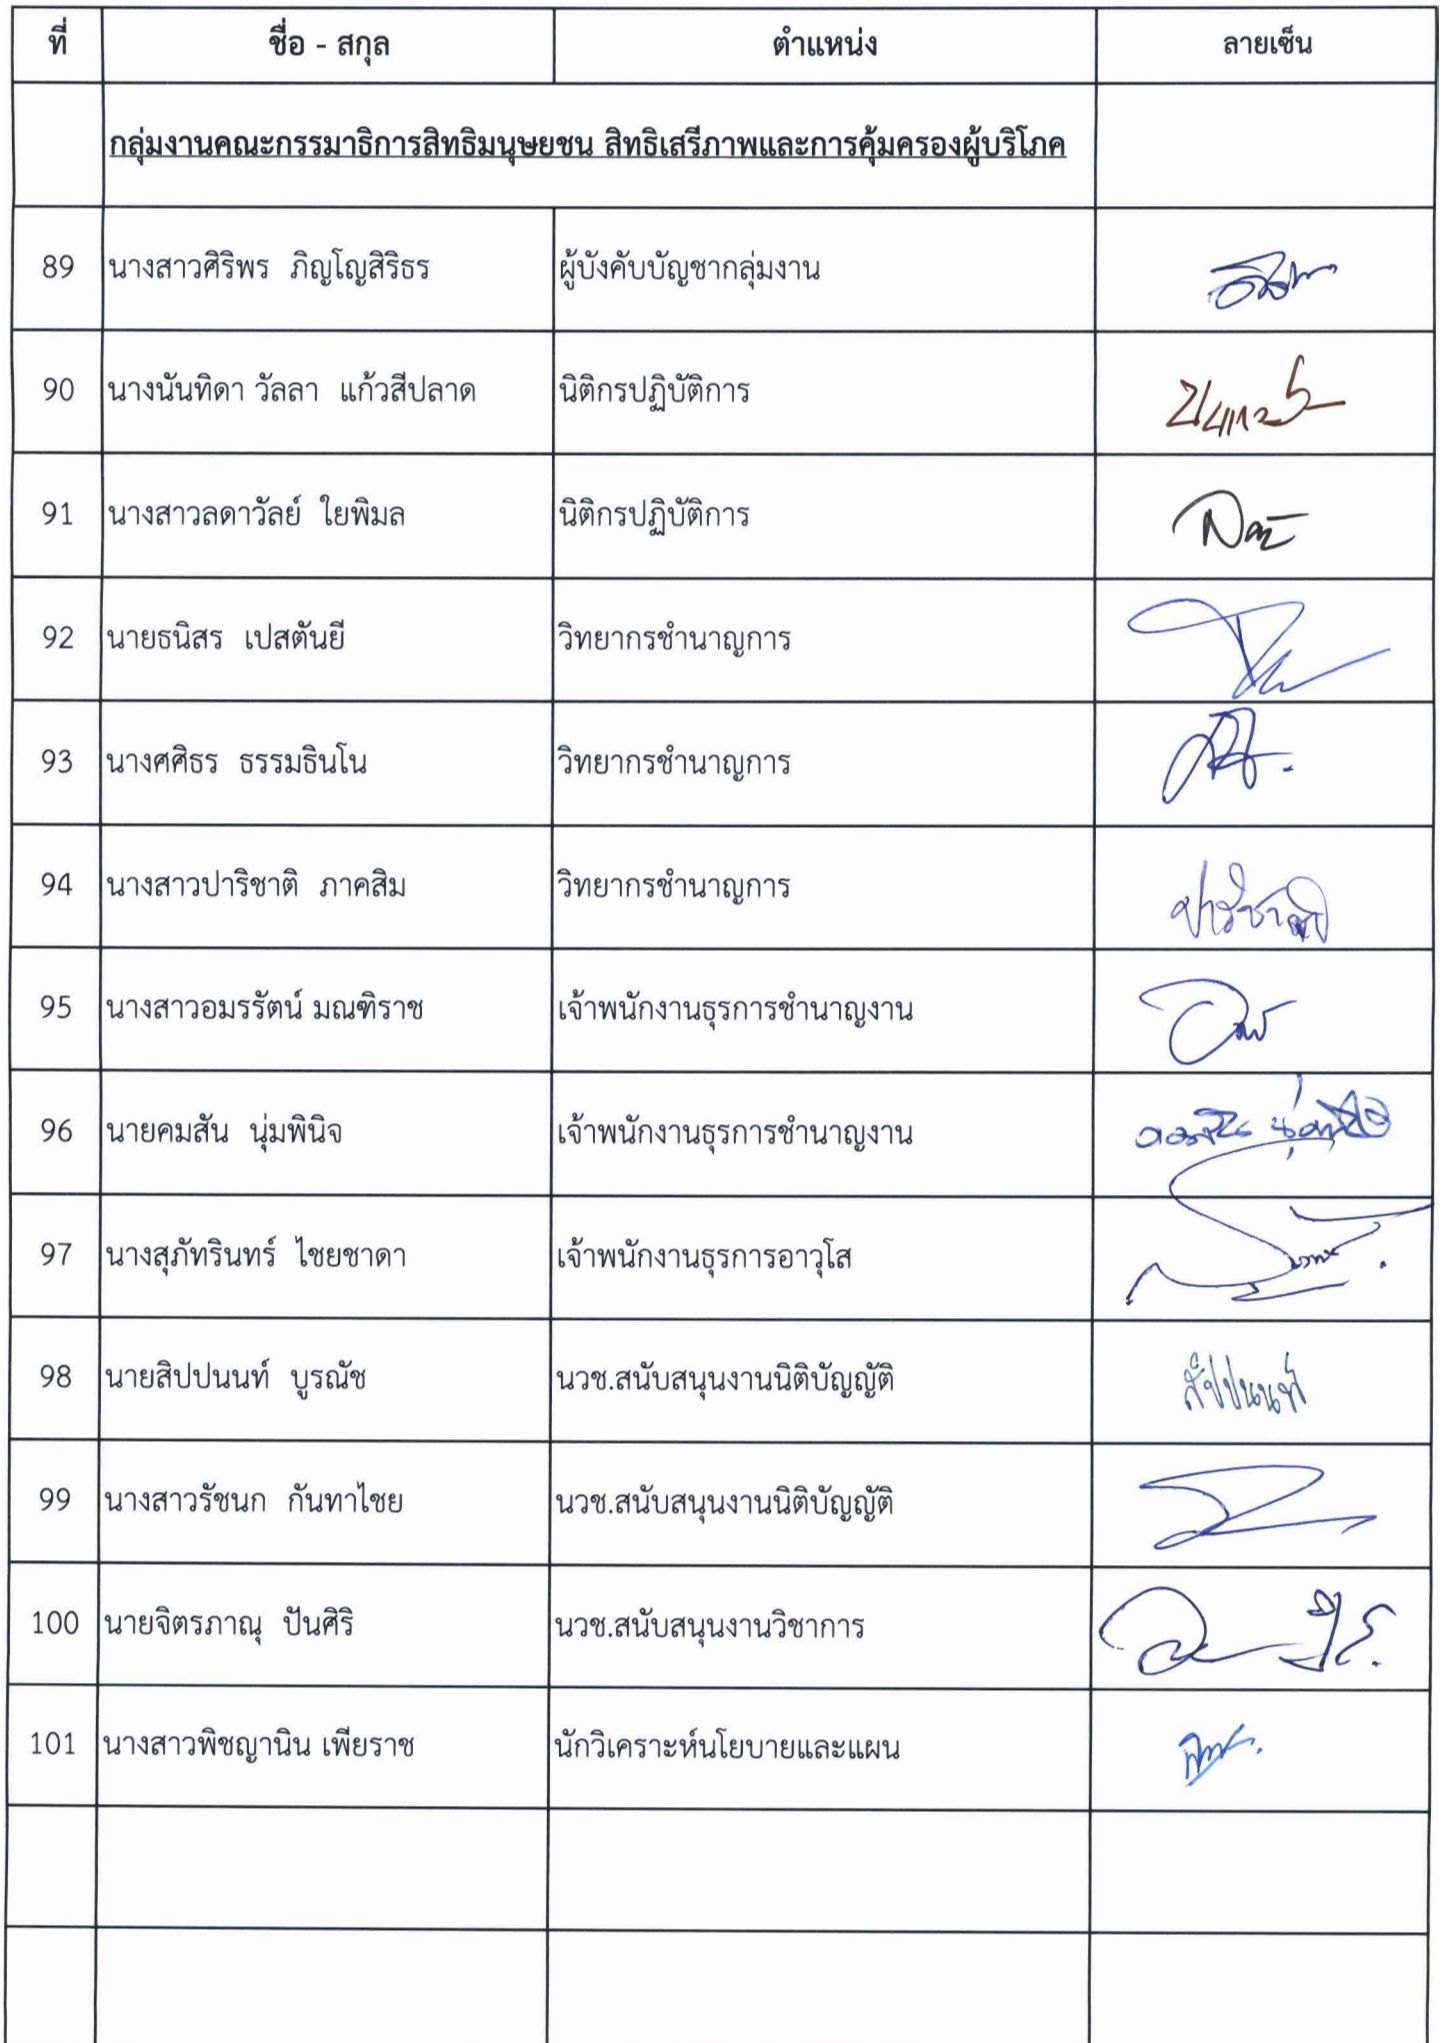 ที่ ชื่อ - สกุล ตำแหน่ง ลายเซ็น
กลุ่มงานคณะกรรมาธิการสิทธิมนุษยชน สิทธิเสรีภาพและการคุ้มครองผู้บริโภค
89 นางสาวศิริพร ภิญโญสิริธร ผู้บังคับบัญชากลุ่มงาน
90 นางนันทิดา วัลลา แก้วสีปลาด นิติกรปฏิบัติการ
91 นางสาวลดาวัลย์ ใยพิมล นิติกรปฏิบัติการ
92 นายธนิสร เปสตันยี วิทยากรชำนาญการ
93 นางศศิธร ธรรมธินโน วิทยากรชำนาญการ
94 นางสาวปาริชาติ ภาคสิม วิทยากรชำนาญการ ปาริชาติ
95 นางสาวอมรรัตน์ มณฑิราช เจ้าพนักงานธุรการชำนาญงาน
96 นายคมสัน นุ่มพินิจ เจ้าพนักงานธุรการชำนาญงาน คมสัน นุ่มพินิจ
97 นางสุภัทรินทร์ ไชยชาดา เจ้าพนักงานธุรการอาวุโส
98 นายสิปปนนท์ บูรณัช นวช.สนับสนุนงานนิติบัญญัติ สิปปนนท์
99 นางสาวรัชนก กันทาไชย นวช.สนับสนุนงานนิติบัญญัติ
100 นายจิตรภาณุ ปันศิริ นวช.สนับสนุนงานวิชาการ
101 นางสาวพิชญานิน เพียราช นักวิเคราะห์นโยบายและแผน